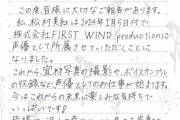 この度、皆様に大切なご報告があります。
私、松村美紅は2024年1月5日付で
株式会社FIRST WIND productionに
声優として所属させていただくことに
なりました。
これから、宣材写真の撮影や、ボイスサンプル
の収録など声優としてのお仕事が始まります。
今はこれからの未来に楽しみな気持ちで
いっぱいです!